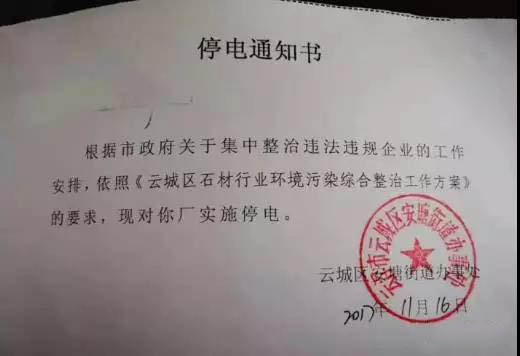 停电通知书
根据市政府关于集中整治违法违规企业的工作
安排，依照《云城区石材行业环境污染综合整治工作方案》
的要求，现对你厂实施停电。
云城区安塘街道办事处
2017年11月16日
云浮市云城区安塘街道办事处